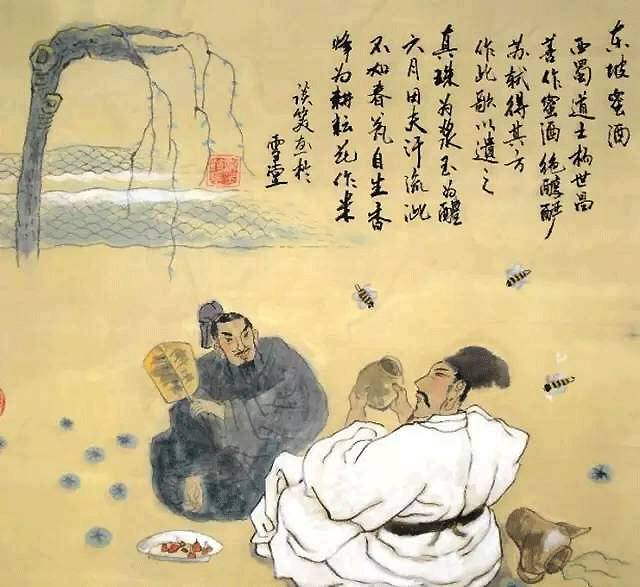 东坡蜜酒
西蜀道士杨世昌
善作蜜酒绝醇酽
苏轼得其方
作此歌以遗之
真珠为浆玉为醴
六月田夫汗流泚
不如春瓮自生香
蜂为耕耘花作米
谈画於
雪堂